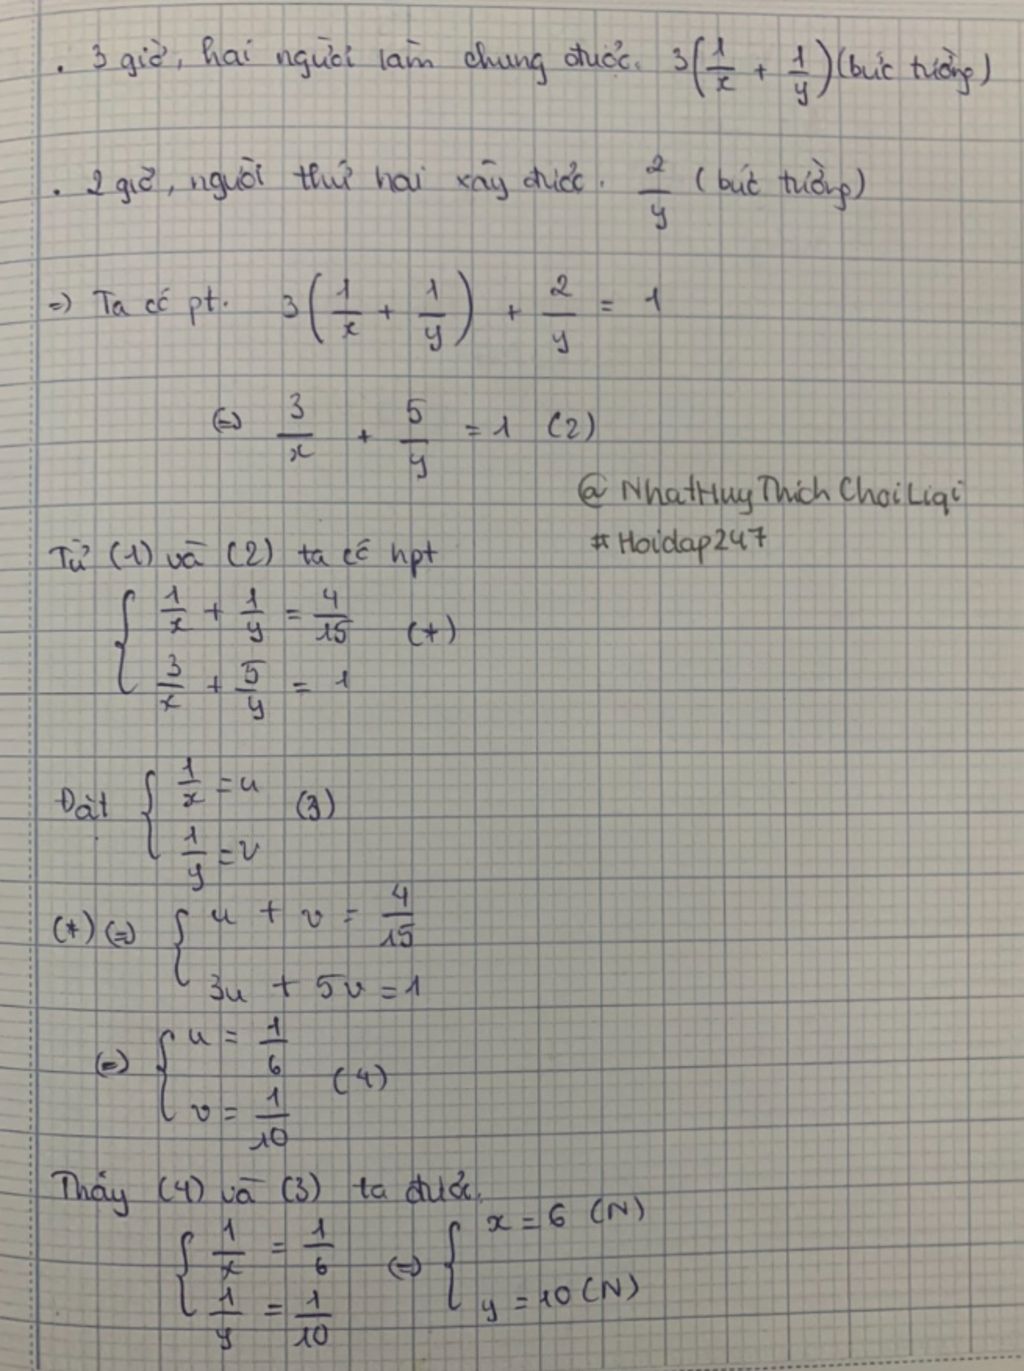 . 3 giờ, hai người làm chung được. 3(1/x + 1/y) (bức tường)
. 2 giờ, người thứ hai xây được. 2/y (bức tường)
=) Ta có pt. 3(1/x + 1/y) + 2/y = 1
(=) 3/x + 5/y = 1 (2)
@NhatHuyThichChoiLiqi
#Hoidap247
Từ (1) và (2) ta có hpt
{ 1/x + 1/y = 4/15 (*)
3/x + 5/y = 1
Đặt { 1/x = u (3)
1/y = v
(*) (=) { u + v = 4/15
3u + 5v = 1
(=) { u = 1/6 (4)
v = 1/10
Thấy (4) và (3) ta được.
{ 1/x = 1/6 (=) { x = 6 (N)
1/y = 1/10 y = 10 (N)